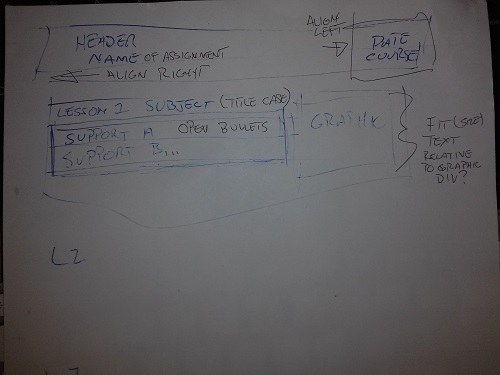 HEADER
NAME OF ASSIGNMENT
ALIGN RIGHT
ALIGN
LEFT
DATE
COURSE
LESSON 1 SUBJECT (TITLE CASE)
SUPPORT A OPEN BULLETS
SUPPORT B...
GRAPHIC
FIT (SIZE)
TEXT
RELATIVE
TO GRAPHIC
DIV?
L2